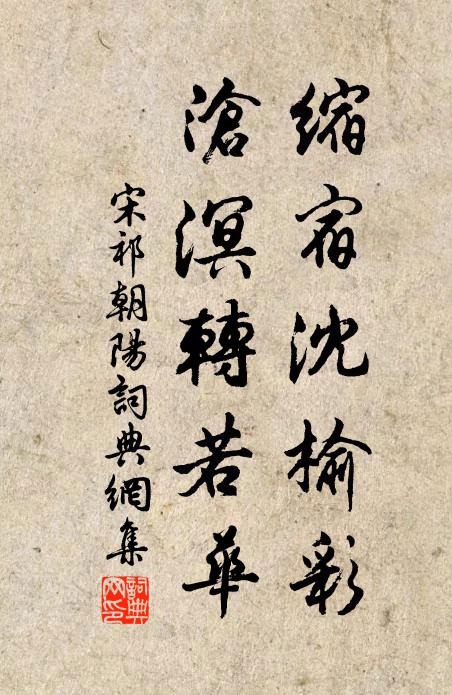 縮宿沈榆彩
滄溟轉若華
宋祁朝陽詞典網集
詞典